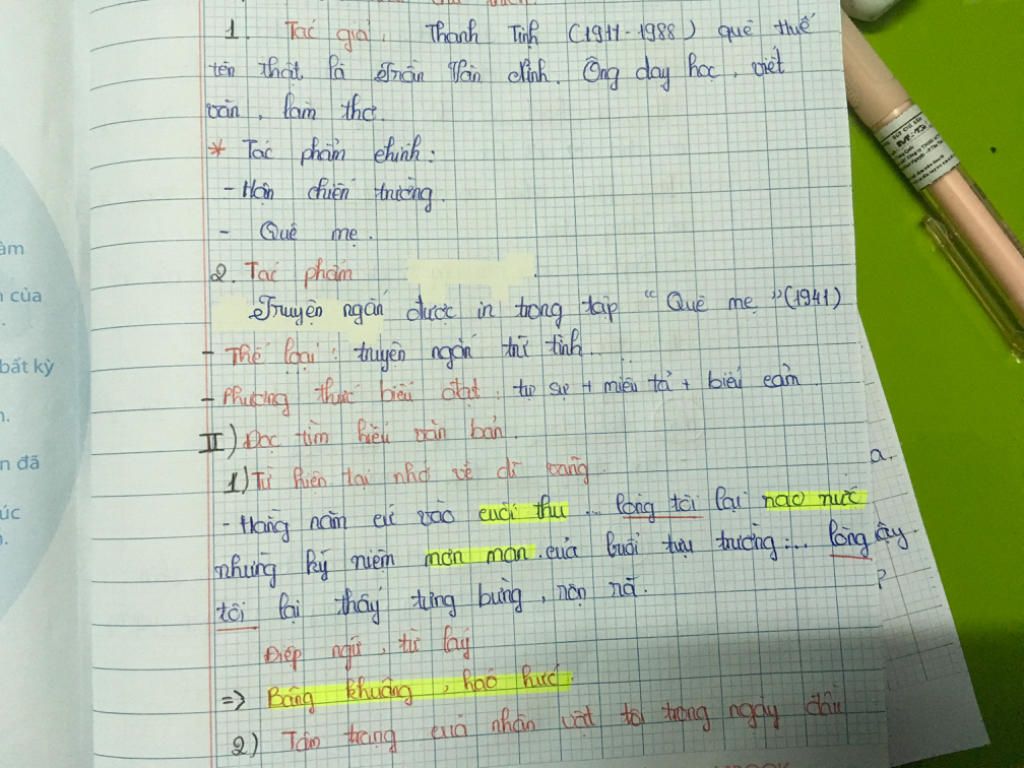 1. Tác giả. Thanh Tịnh (1911-1988) quê Huế
tên thật là Trần Văn Ninh. Ông dạy học, viết
văn, làm thơ.
* Tác phẩm chính:
- Hận chiến trường.
- Quê mẹ.
2. Tác phẩm
Truyện ngắn được in trong tập "Quê mẹ" (1941)
- Thể loại: truyện ngắn trữ tình.
- Phương thức biểu đạt: tự sự + miêu tả + biểu cảm
II) Đọc tìm hiểu văn bản.
1) Từ hiện tại nhớ về dĩ vãng
- Hằng năm cứ vào cuối thu ... lòng tôi lại nao nức
những kỷ niệm mơn man của buổi tựu trường .... lòng
tôi lại thấy tưng bừng, rộn rã.
Điệp ngữ, từ láy
=> Bâng khuâng, háo hức.
2) Tâm trạng của nhân vật tôi trong ngày đầu
a.
ậy.
?
âm
của
bất kỳ
n đã
úc